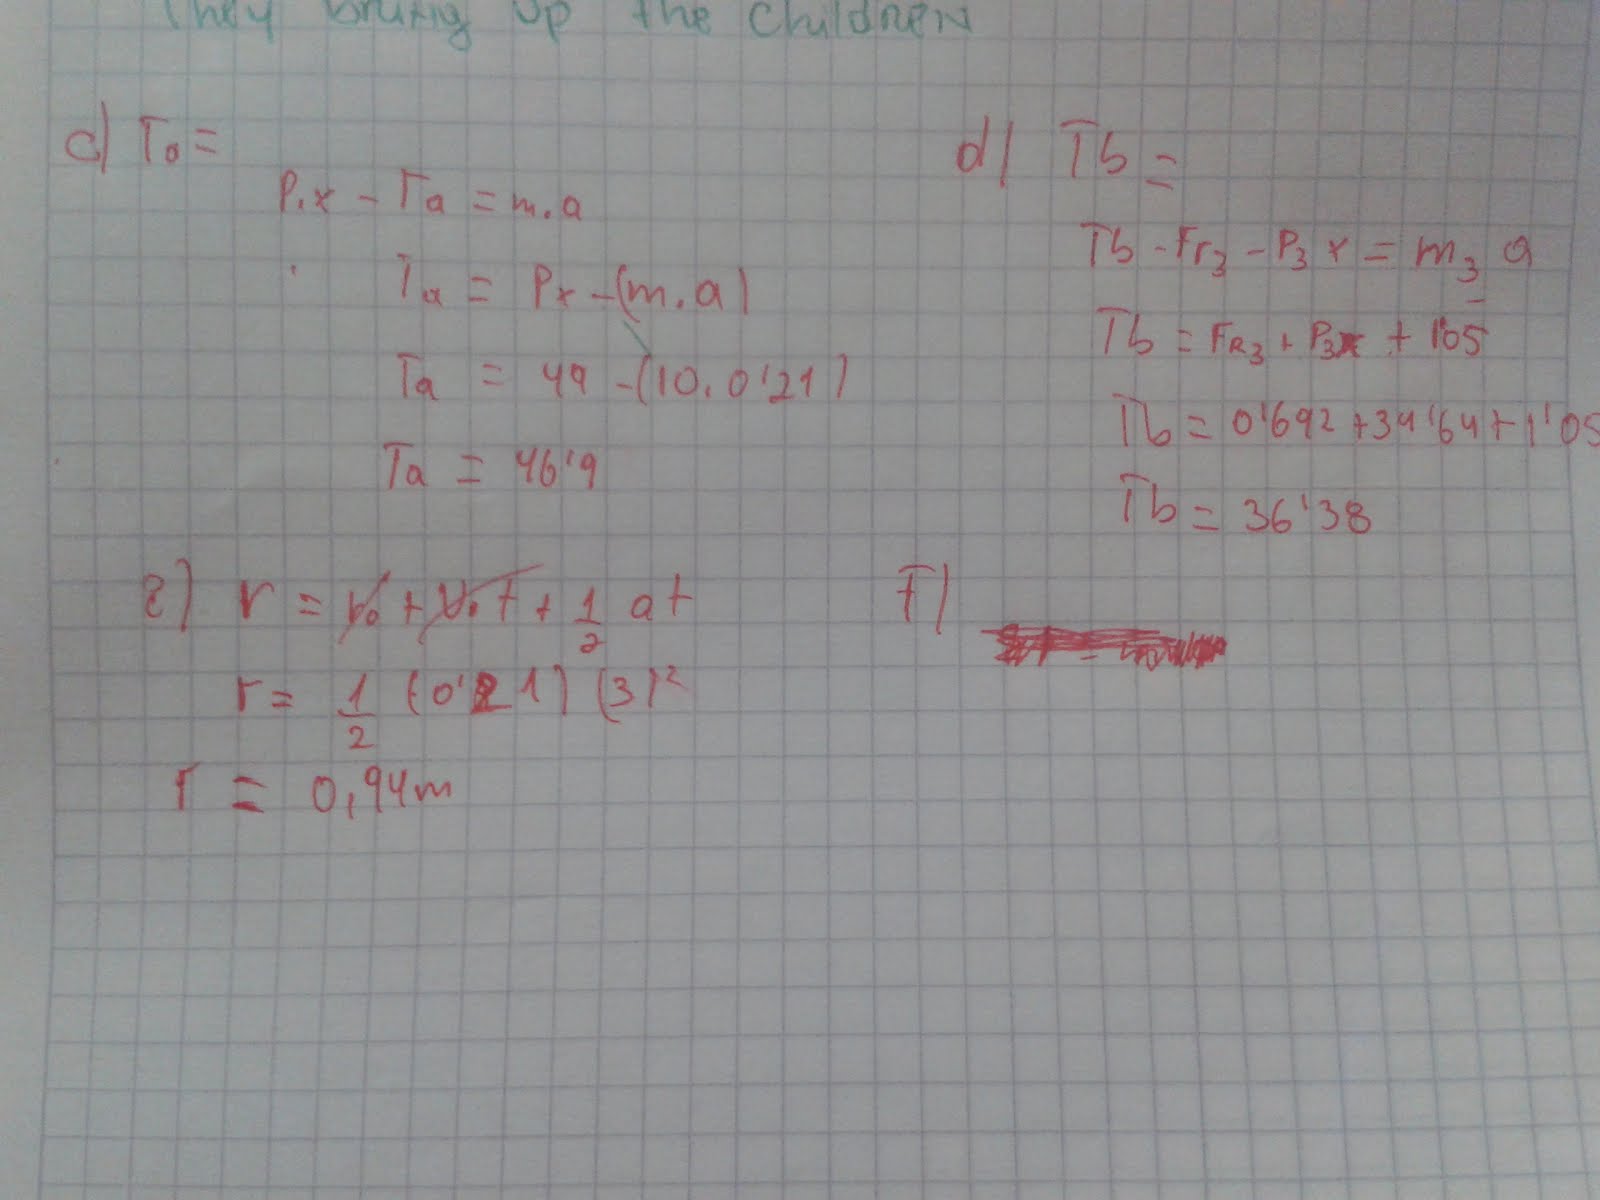 They bring up the children
c) Ta =
P1x - Ta = m.a
Ta = Px - (m.a)
Ta = 49 - (10.0'21)
Ta = 46'9
d) Tb =
Tb - Fr3 - P3x = m3 a
Tb = FR3 + P3x + 1'05
Tb = 0'692 + 34'64 + 1'05
Tb = 36'38
e) r = r0 + v0t + 1/2 at
r = 1/2 (0'21) (3)²
r = 0,94m
F)